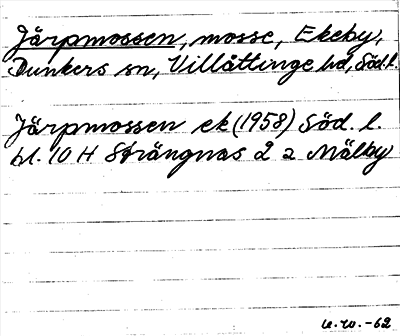 Järpmossen, mosse, Ekeby,
Dunkers sn, Villåttinge hd, Söd.l.
Järpmossen ek (1958) Söd. l.
bl. 10 H Strängnäs 2 a Mälby
u.w. -62